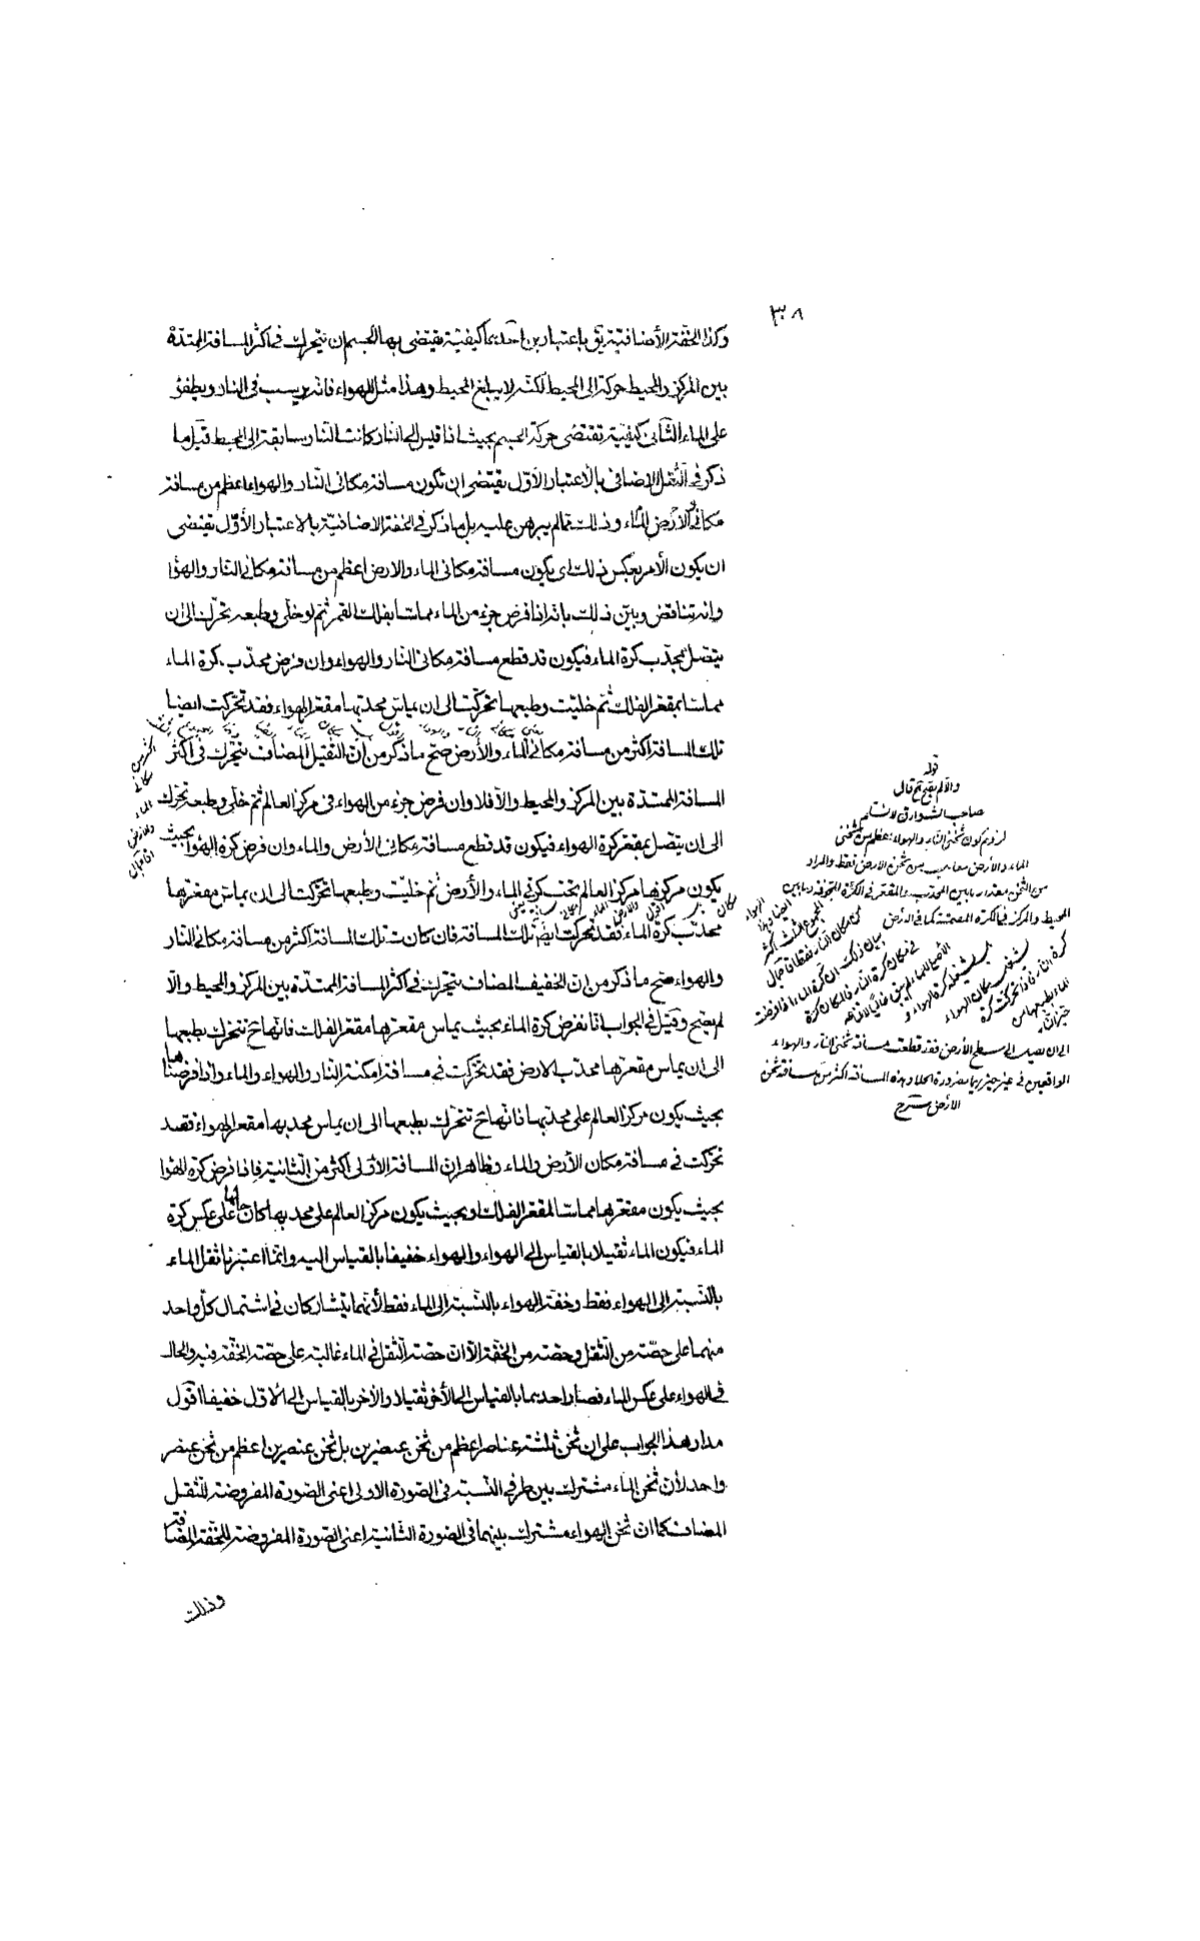 ٣٠٨
وكذا الخفّة الأضافية يق باعتبارين احدهما كيفيّة يقتضى بها الجسم ان يتحرك فى اكثر المسافة الممتدّة
بين المركز والمحيط حركة الى المحيط لكنّه لا يبلغ المحيط وهذا مثل الهواء فانّه يرسب فى النار ويطفو
على الماء الثانى كيفيّة تقتضى حركة الجسم بحيث اذا قيس الى النار كانت النّار سابقة الى المحيط قيل ما
ذكر فى الثّقل الاضافى بالاعتبار الأوّل يقتضى ان تكون مسافة مكانى النّار والهواء اعظم من مسافة
مكانى الأرض والماء وذلك ممّا لم يبرهن عليه بل ما ذكر فى الخفة الاضافيّة بالاعتبار الأوّل يقتضى
ان يكون الأمر بعكس ذلك اى يكون مسافة مكانى الماء والارض اعظم من مسافة مكانى النّار والهواء
وانه تناقض وبيّن ذلك بانه اذا فرض جزء من الماء مماسا بفلك القمر ثم لو خلّى وطبعه تحرّك الى ان
يتّصل بمحدّب كرة الماء فيكون قد قطع مسافة مكانى النّار والهواء وان فرض محدّب كرة الماء
مماسا بمقعّر الفلك ثم خلّيت وطبعها تحرّكت الى ان يماسّ محدبها مقعّر الهواء فقد تحرّكت ايضا
تلك المسافة اكثر من مسافة مكانى الماء والأرض صحّ ما ذكر من انّ الثّقيل المضاف يتحرّك فى اكثر
المسافة الممتدّة بين المركز والمحيط والّا فلا وان فرض جزء من الهواء فى مركز العالم ثم خلّى وطبعه تحرّك
الى ان يتّصل بمقعّر كرة الهواء فيكون قد قطع مسافة مكانى الأرض والماء وان فرض كرة الهواء بحيث
يكون مركزها مركز العالم تحت كرتى الماء والأرض ثم خلّيت وطبعها تحرّكت الى ان يماس مقعرها
محدّب كرة الماء فقد تحرّكت ايضا تلك المسافة فان كانت تلك المسافة اكثر من مسافة مكانى النار
والهواء صح ما ذكر من ان الخفيف المضاف يتحرّك فى اكثر المسافة الممتدّة بين المركز والمحيط والّا
لم يصح وقيل فى الجواب انّا نفرض كرة الماء بحيث يماس مقعرها مقعّر الفلك فانّها ح تتحرّك بطبعها
الى ان يماس مقعرها محدّب الارض فقد تحرّكت فى مسافة امكنة النّار والهواء والماء واذا فرضناها
بحيث يكون مركز العالم على محدّبها فانّها ح تتحرّك بطبعها الى ان يماس محدبها مقعر الهواء فقد
تحرّكت فى مسافة مكان الأرض والماء وظاهر ان المسافة الاولى اكثر من الثّانية فاذا فرض كرة الهواء
بحيث يكون مقعّرها مماسا لمقعّر الفلك وبحيث يكون مركز العالم على محدبها كان حالها على عكس كرة
الماء فيكون الماء ثقيلا بالقياس الى الهواء والهواء خفيفا بالقياس اليه وانّما اعتبرنا ثقل الماء
بالنّسبة الى الهواء فقط وخفّة الهواء بالنّسبة الى الماء فقط لأنّهما يتشاركان فى اشتمال كلّ واحد
منهما على حصّة من الثّقل وحصّة من الخفّة الّا انّ حصّة الثّقل فى الماء غالبة على حصّة الخفّة فيه والحال
فى الهواء على عكس الماء فصار احدهما بالقياس الى الأخر ثقيلا والأخر بالقياس الى الأول خفيفا اقول
مدار هذا الجواب على ان ثخن ثلثة عناصر اعظم من ثخن عنصرين بل ثخن عنصرين اعظم من ثخن عنصر
واحد لأن ثخن الماء مشترك بين طرفى النّسبة فى الصّورة الاولى اعنى الصّورة المفروضة للثّقل
المضاف كما ان ثخن الهواء مشترك بينهما فى الصّورة الثّانية اعنى الصّورة المفروضة للخفّة المضافة
وذلك
قوله
والّا لم يصح ثم قال
صاحب الشوارق لا نسلم
لزوم كون ثخنى النار والهواء اعظم من ثخنى
الماء والأرض من ثخن الأرض فقط والمراد
من الثخن مقدار ما بين المحدّب والمقعر فى الكرة المجوفة وما بين
المحيط والمركز فى الكرة المصمتة كما فى الأرض
الى ان يصل الى سطح الأرض فقد قطعت مسافة ثخنى النار والهواء
الواقعين فى غير حيزيهما ضرورة الخلا وهذه المسافة اكثر من مسافة ثخن
الأرض شرح